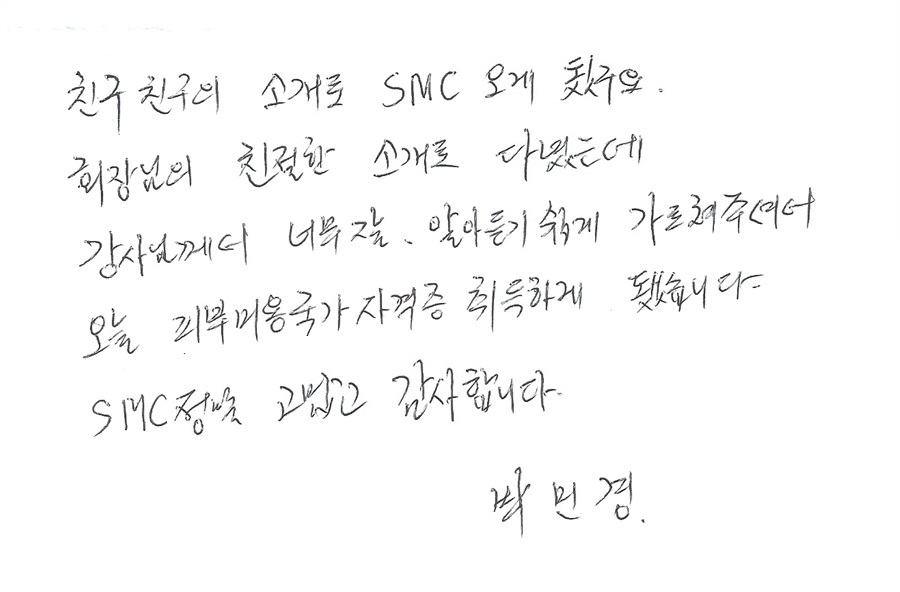 친구 친구의 소개로 SMC 오게 됬구요.
회장님의 친절한 소개로 다녔는데
강사님께서 너무 잘. 알아듣기 쉽게 가르쳐주셔서
오늘 피부미용국가자격증 취득하게 됐습니다
SMC정말 고맙고 감사합니다.
박민경.